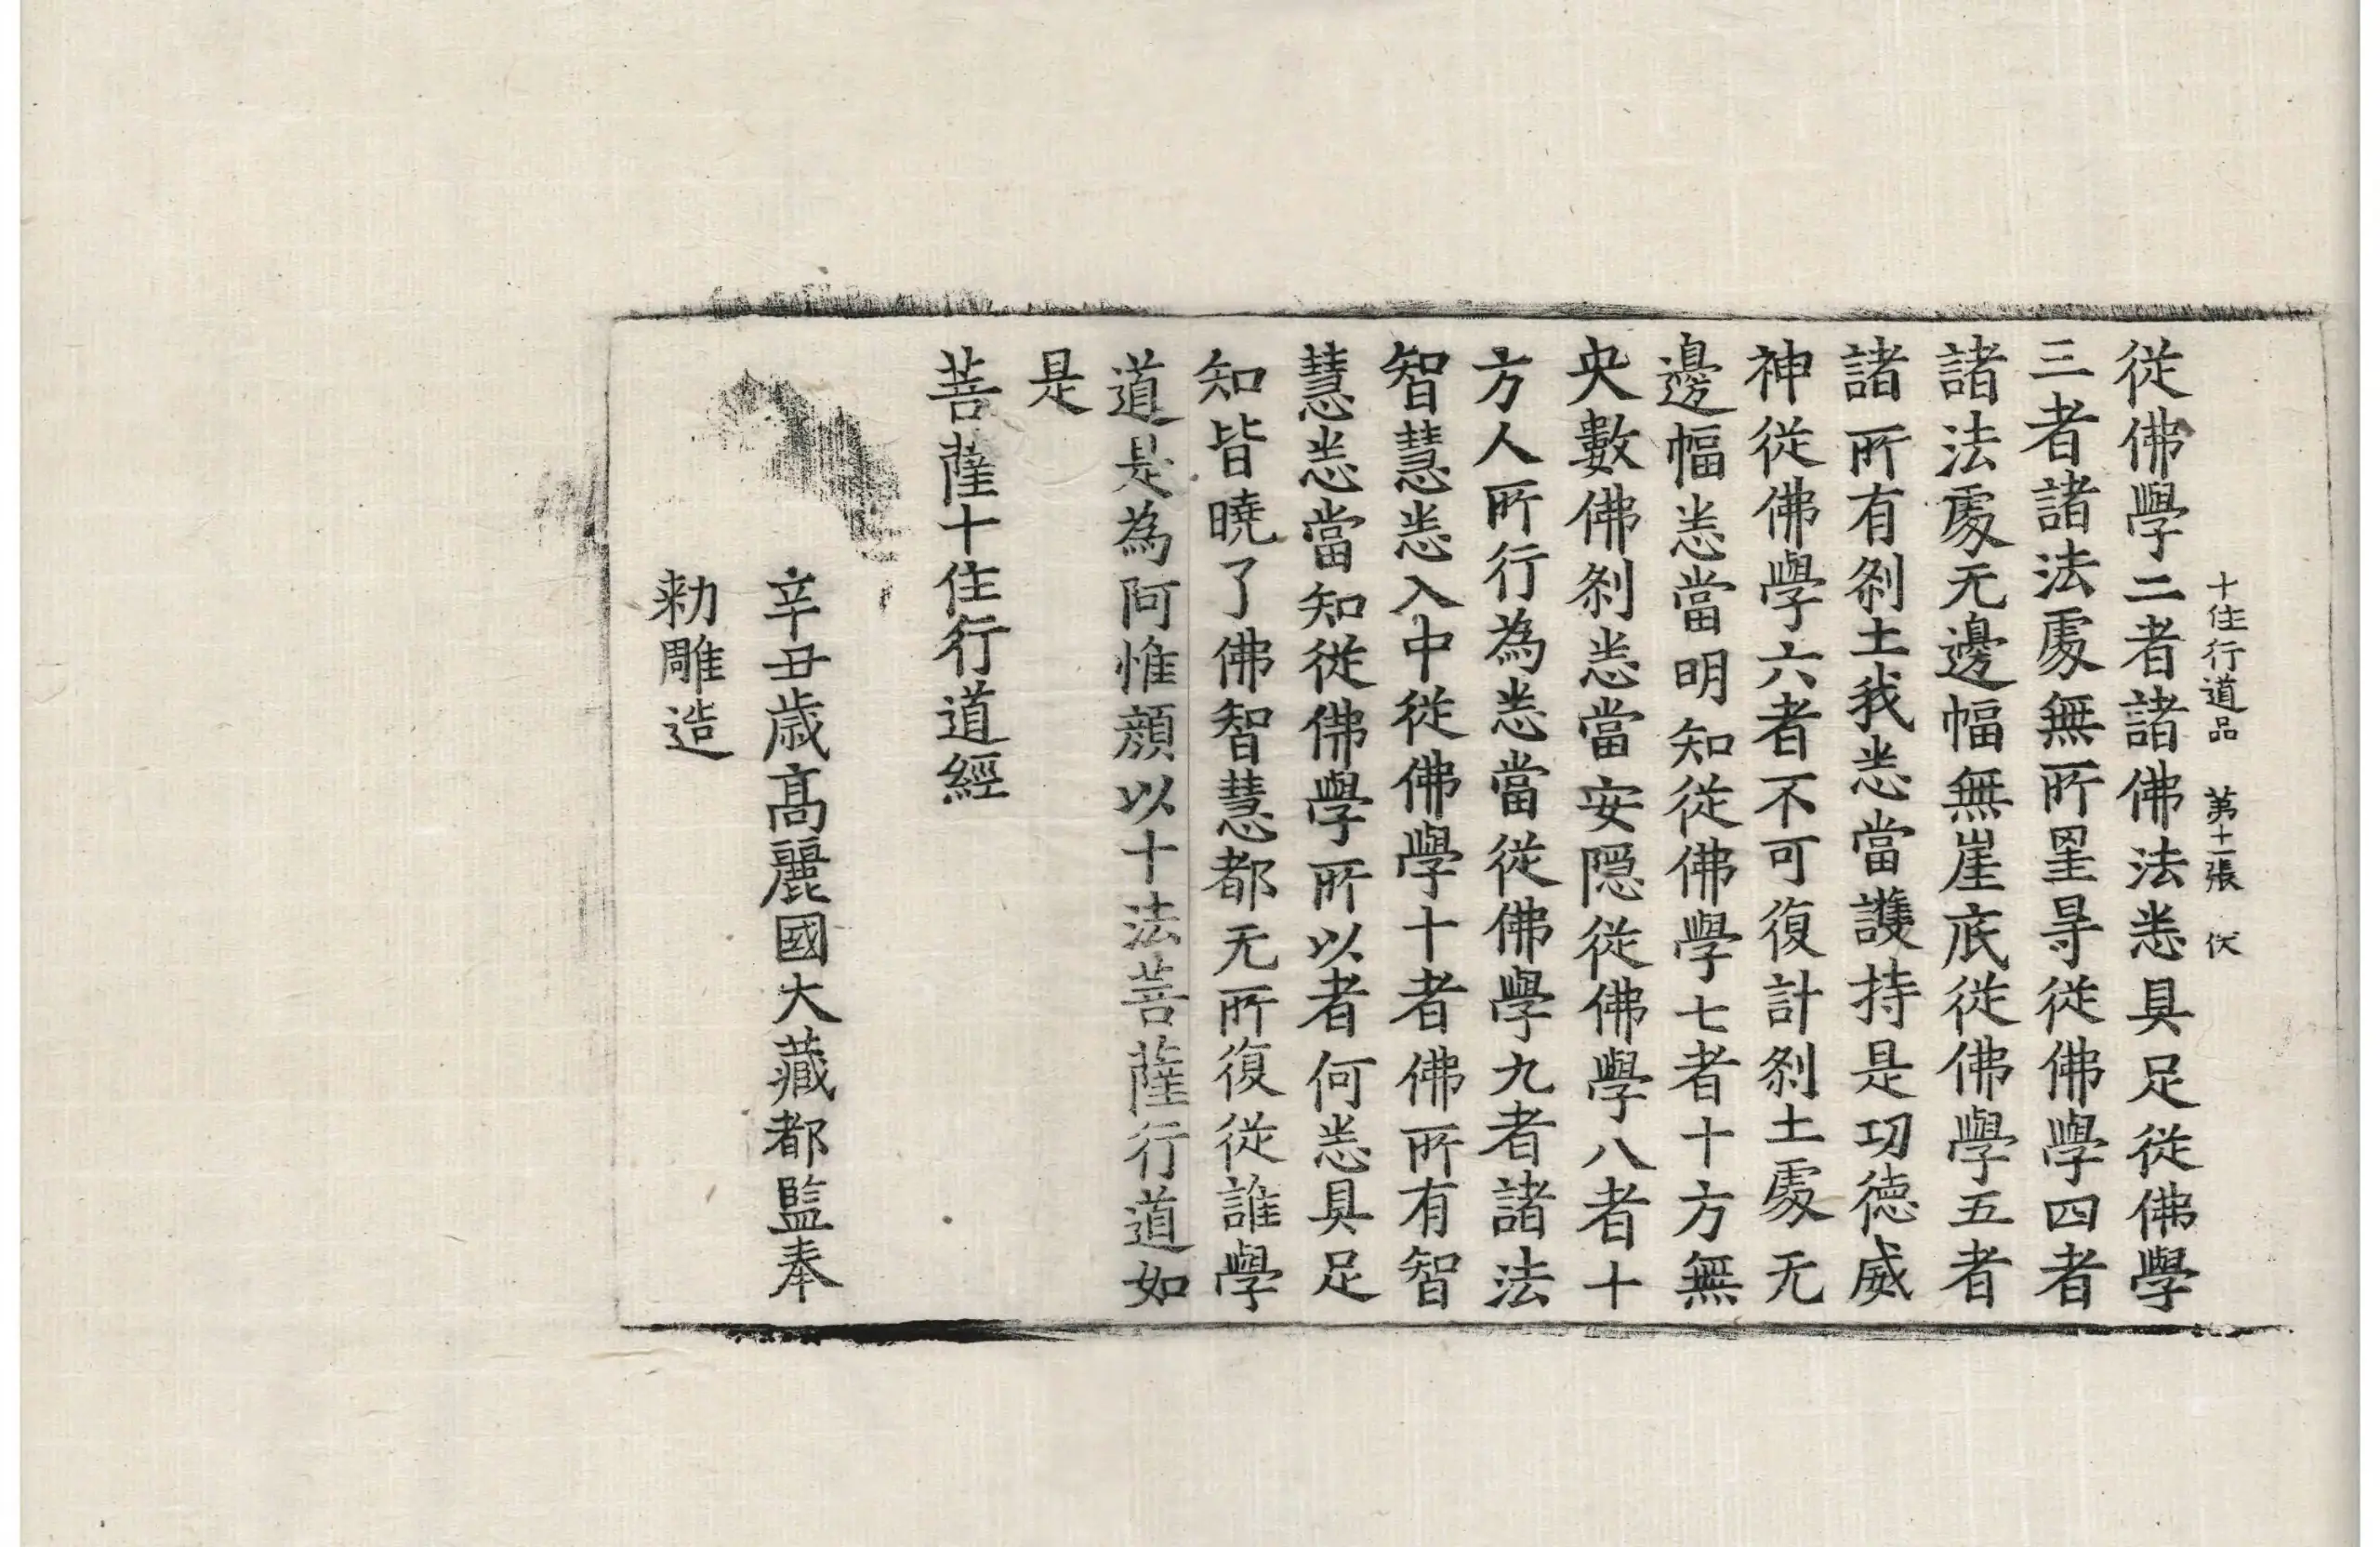 十住行道品 第十一張 伏
從佛學二者諸佛法悉具足從佛學
三者諸法處無所罣㝵從佛學四者
諸法處无邊幅無崖底從佛學五者
諸所有刹土我悉當護持是功德威
神從佛學六者不可復計刹土處无
邊幅悉當明知從佛學七者十方無
央數佛刹悉當安隱從佛學八者十
方人所行為悉當從佛學九者諸法
智慧悉入中從佛學十者佛所有智
慧悉當知從佛學所以者何悉具足
知皆曉了佛智慧都无所復從誰學
道是為阿惟顏以十法菩薩行道如
是
菩薩十住行道經
辛丑歲高麗國大藏都監奉
勅雕造